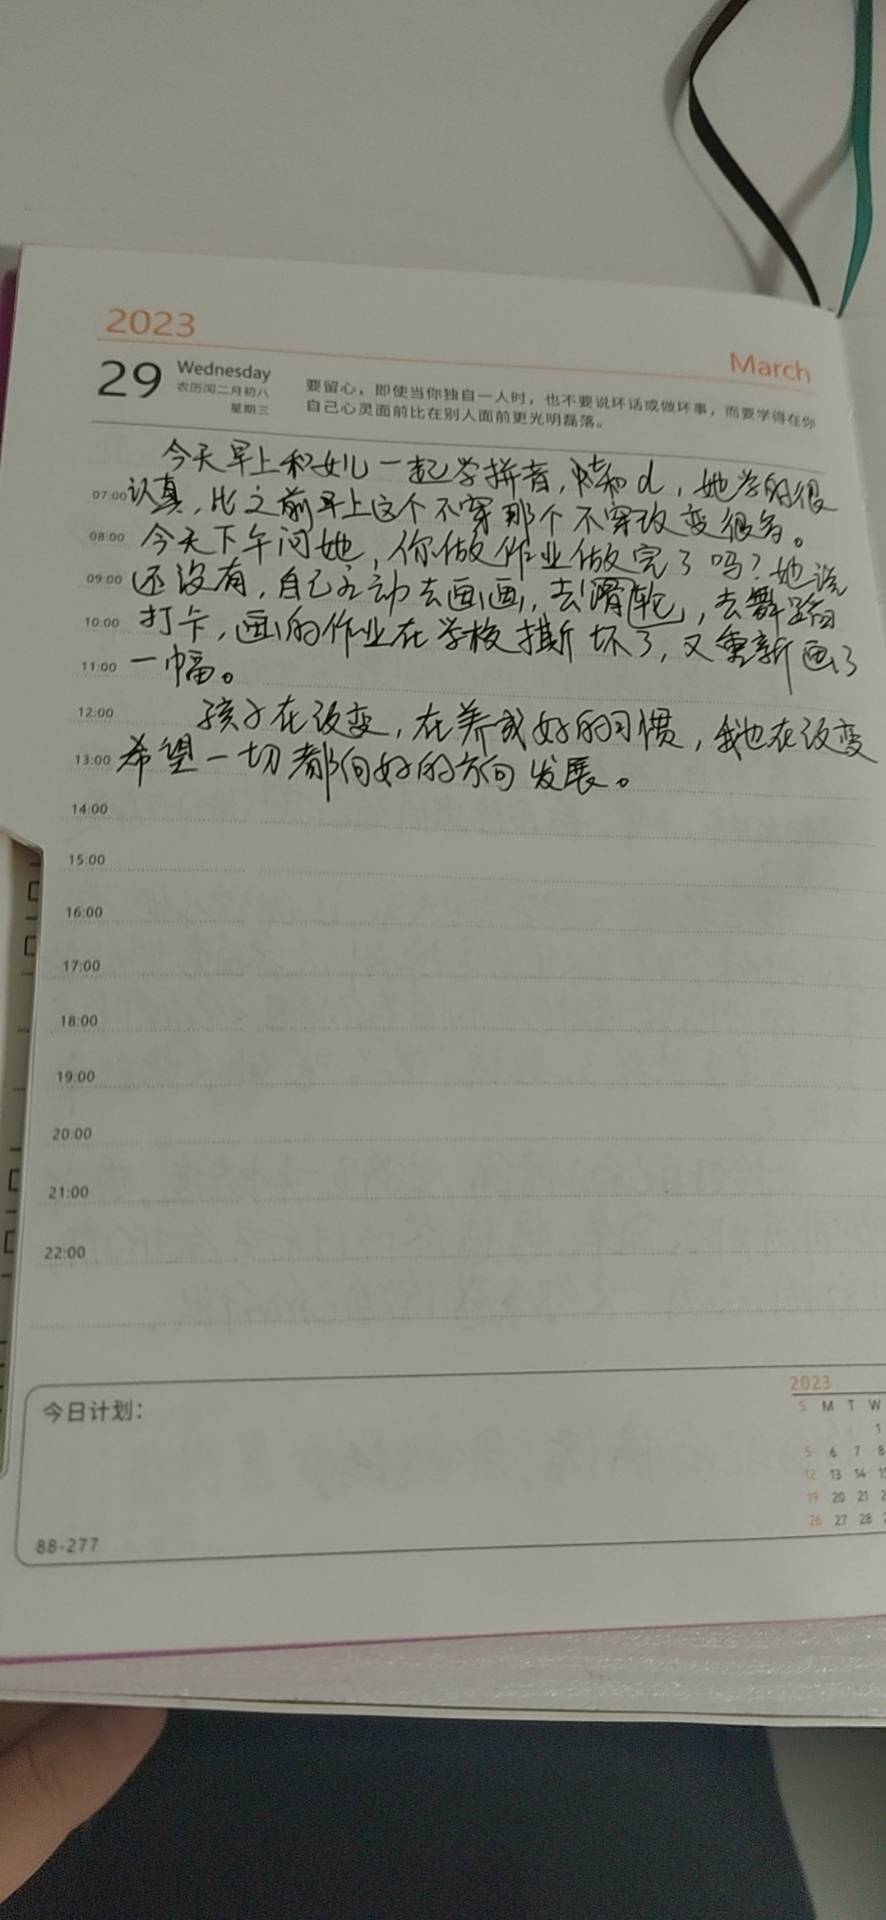 2023
March
29 Wednesday
农历闰二月初八
星期三
要留心，即使当你独自一人时，也不要说坏话或做坏事，而要学得在你
自己心灵面前比在别人面前更光明磊落。
今天早上和女儿一起学拼音，和d，她学的很
07:00 认真，比之前早上这个不穿那个不穿改变很多。
08:00 今天下午问她，你做作业做完了吗？她说
09:00 还没有，自己主动去画画，去滑轮，去舞蹈
10:00 打卡，画的作业在学校撕坏了，又重新画了
11:00 一幅。
12:00 孩子在改变，在养成好的习惯，我也在改变
13:00 希望一切都向好的方向发展。
14:00
15:00
16:00
17:00
18:00
19:00
20:00
21:00
22:00
今日计划：
2023
S M T W
1
5 6 7 8
12 13 14 15
19 20 21 2
26 27 28 2
88-277